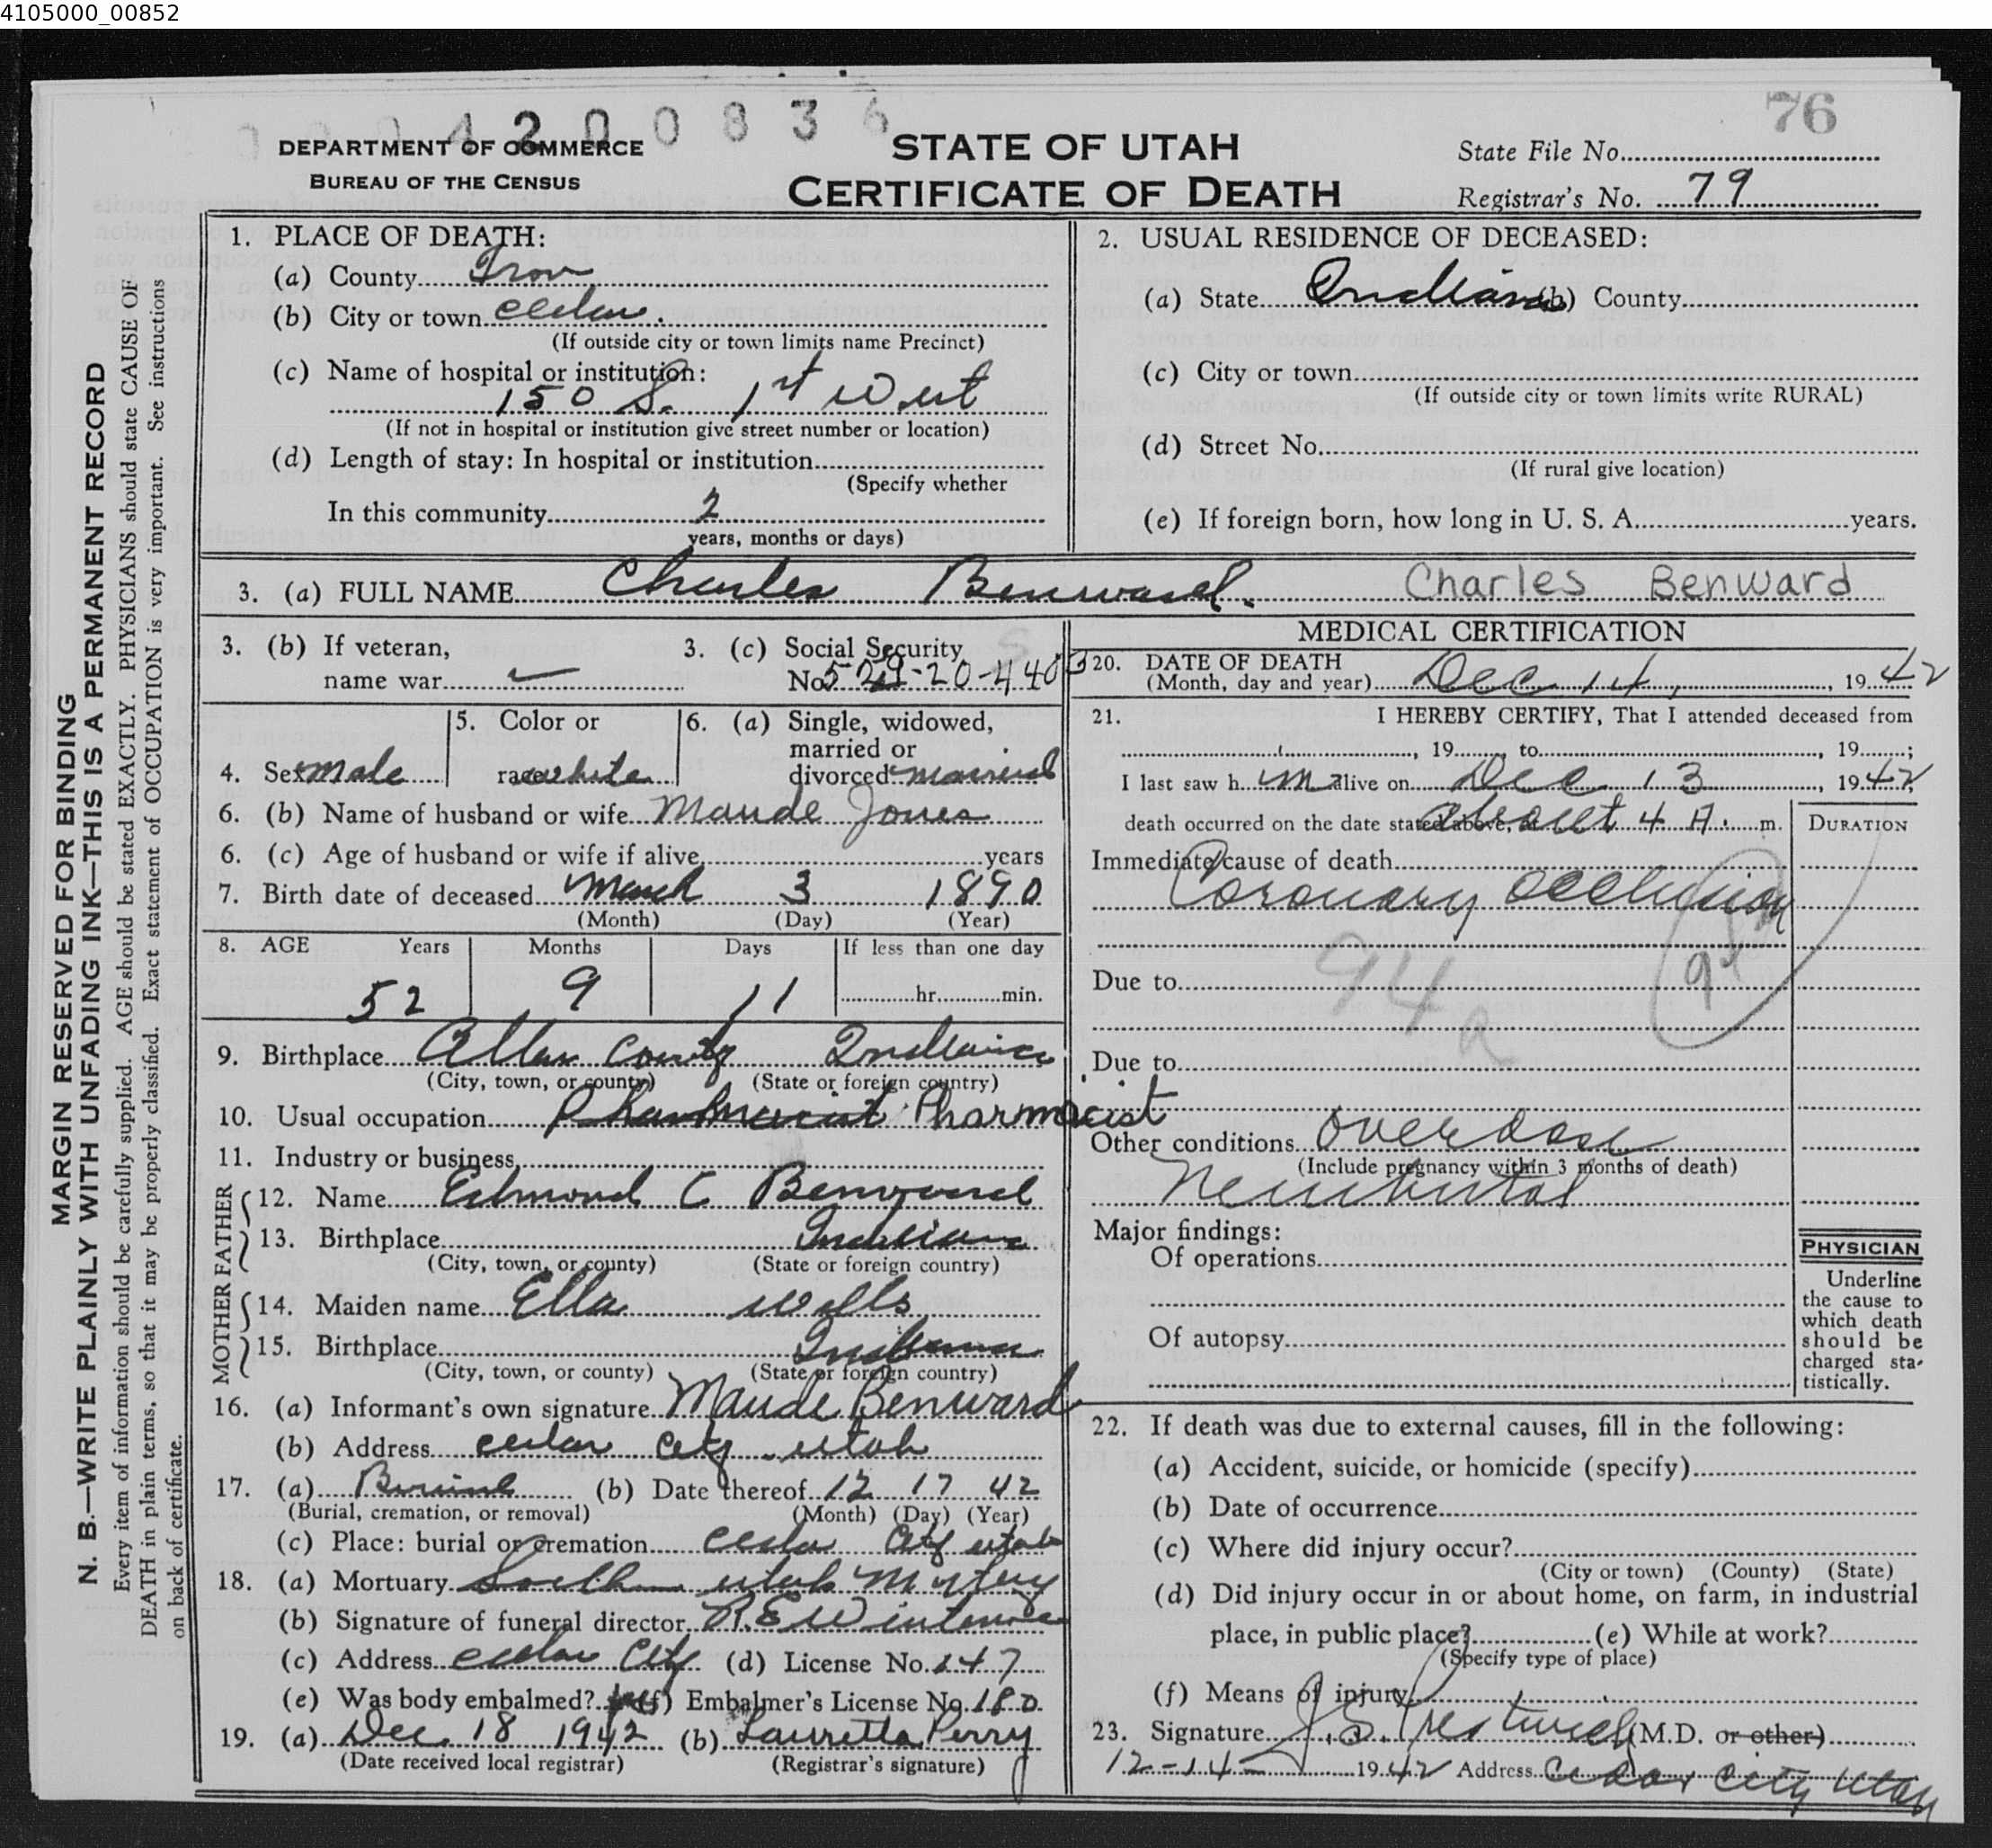 4105000_00852
76
4 2 0 0 8 3 6
DEPARTMENT OF COMMERCE
BUREAU OF THE CENSUS
STATE OF UTAH
CERTIFICATE OF DEATH
State File No.
Registrar's No. 79
MARGIN RESERVED FOR BINDING
N. B.—WRITE PLAINLY WITH UNFADING INK—THIS IS A PERMANENT RECORD
Every item of information should be carefully supplied. AGE should be stated EXACTLY. PHYSICIANS should state CAUSE OF
DEATH in plain terms, so that it may be properly classified. Exact statement of OCCUPATION is very important. See instructions
on back of certificate.
1. PLACE OF DEATH:
(a) County Iron
(b) City or town Cedar.
(If outside city or town limits name Precinct)
(c) Name of hospital or institution:
150 S. 1st West
(If not in hospital or institution give street number or location)
(d) Length of stay: In hospital or institution
(Specify whether
In this community 2
years, months or days)
2. USUAL RESIDENCE OF DECEASED:
(a) State Indiana (b) County
(c) City or town
(If outside city or town limits write RURAL)
(d) Street No.
(If rural give location)
(e) If foreign born, how long in U. S. A. years.
3. (a) FULL NAME Charles Benward. Charles Benward
3. (b) If veteran,
name war
3. (c) Social Security
No. 529-20-4403
4. Sex male
5. Color or
race white
6. (a) Single, widowed,
married or
divorced married
6. (b) Name of husband or wife Maude Jones
6. (c) Age of husband or wife if alive, years
7. Birth date of deceased March 3 1890
(Month) (Day) (Year)
8. AGE Years Months Days If less than one day
52 9 11 hr. min.
9. Birthplace Allen County Indiana
(City, town, or county) (State or foreign country)
10. Usual occupation Pharmacist Pharmacist
11. Industry or business
FATHER
12. Name Edmond C Benward
13. Birthplace Indiana
(City, town, or county) (State or foreign country)
MOTHER
14. Maiden name Ella Wells
15. Birthplace Indiana
(City, town, or county) (State or foreign country)
16. (a) Informant's own signature Maude Benward
(b) Address Cedar City Utah
17. (a) Burial (b) Date thereof 12 17 42
(Burial, cremation, or removal) (Month) (Day) (Year)
(c) Place: burial or cremation Cedar City Utah
18. (a) Mortuary Southern Utah Mortuary
(b) Signature of funeral director
(c) Address Cedar City (d) License No. 147
(e) Was body embalmed? yes (f) Embalmer's License No. 180
19. (a) Dec. 18 1942 (b) Lauretta Perry
(Date received local registrar) (Registrar's signature)
MEDICAL CERTIFICATION
20. DATE OF DEATH
(Month, day and year) Dec 14, 1942
21. I HEREBY CERTIFY, That I attended deceased from
, 19 , to , 19 ;
I last saw h im alive on Dec 13, 1942
death occurred on the date stated above, at about 4 A. m.
DURATION
Immediate cause of death
Coronary Occlusion
94a
Due to
Due to
Other conditions overdose
(Include pregnancy within 3 months of death)
Nembutal
Major findings:
Of operations
Of autopsy
PHYSICIAN
Underline
the cause to
which death
should be
charged sta-
tistically.
22. If death was due to external causes, fill in the following:
(a) Accident, suicide, or homicide (specify)
(b) Date of occurrence
(c) Where did injury occur?
(City or town) (County) (State)
(d) Did injury occur in or about home, on farm, in industrial
place, in public place? (e) While at work?
(Specify type of place)
(f) Means of injury
23. Signature (M.D. or other)
12-14- 1942 Address Cedar City Utah